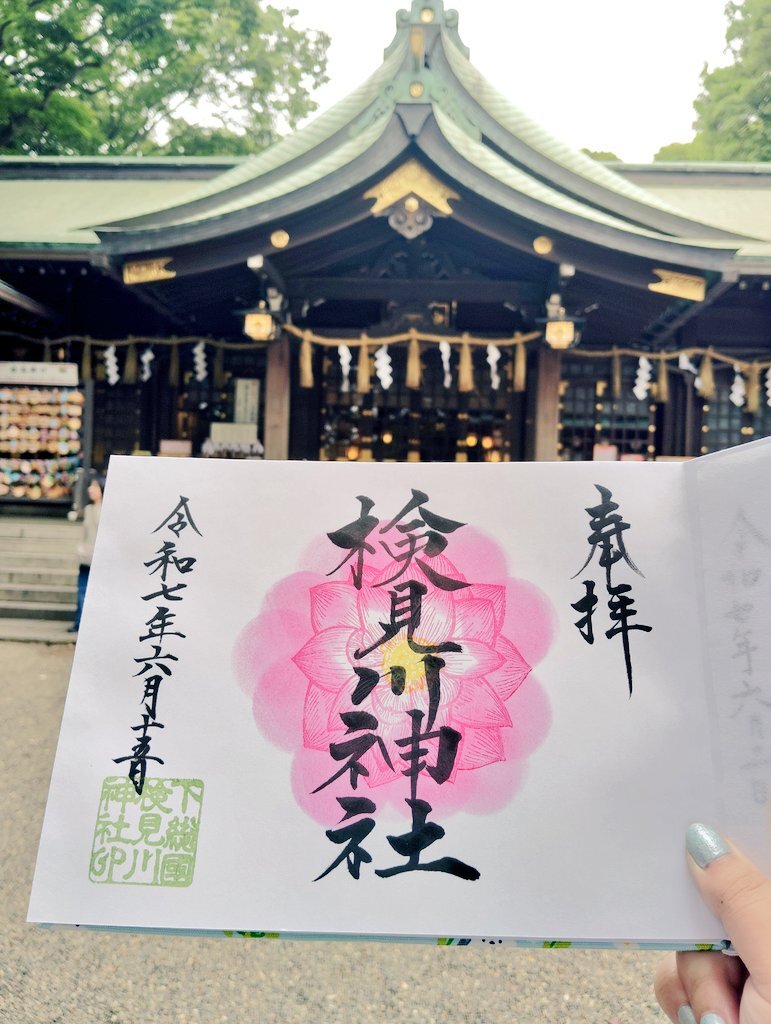 奉拝
検見川神社
令和七年六月十五日
下総國
検見川
神社印